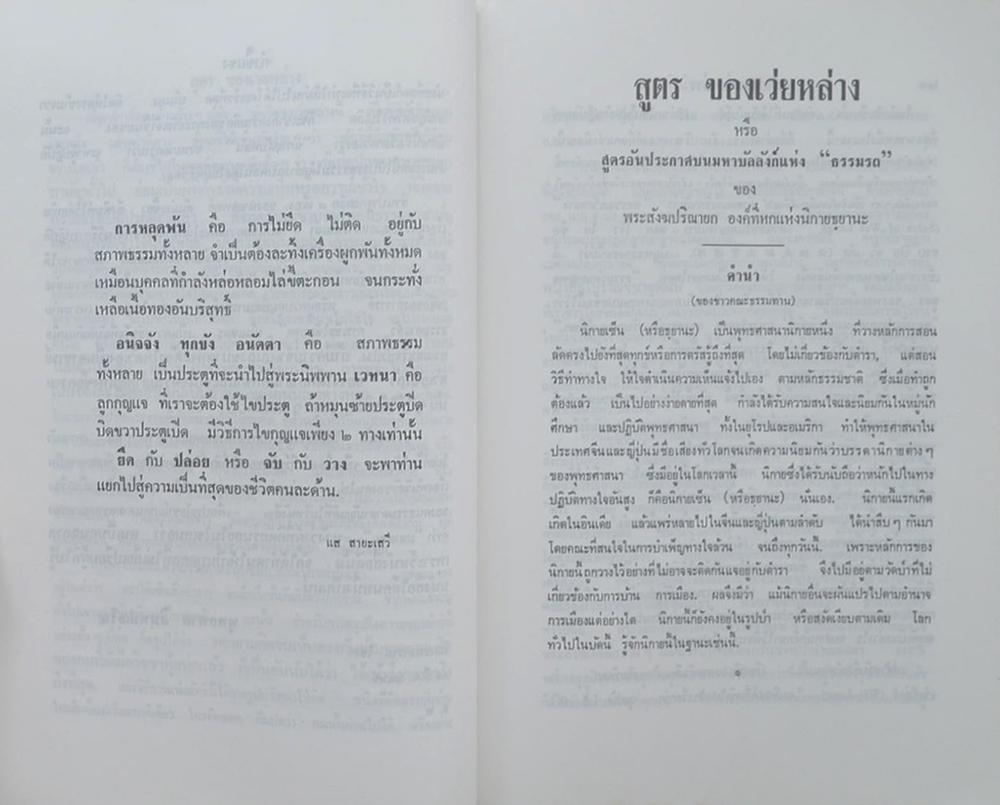 การหลุดพ้น คือ การไม่ยึด ไม่ติด อยู่กับ
สภาพธรรมทั้งหลาย จำเป็นต้องละทิ้งเครื่องผูกพันทั้งหมด
เหมือนบุคคลที่กำลังหล่อหลอมไล่ขี้ตะกอน จนกระทั่ง
เหลือเนื้อทองอันบริสุทธิ์
อนิจจัง ทุกขัง อนัตตา คือ สภาพธรรม
ทั้งหลาย เป็นประตูที่จะนำไปสู่พระนิพพาน เวทนา คือ
ลูกกุญแจ ที่เราจะต้องใช้ไขประตู ถ้าหมุนซ้ายประตูปิด
บิดขวาประตูเปิด มีวิธีการไขกุญแจเพียง ๒ ทางเท่านั้น
ยึด กับ ปล่อย หรือ จับ กับ วาง จะพาท่าน
แยกไปสู่ความเป็นที่สุดของชีวิตคนละด้าน.
แส สายะเสวี
สูตร ของเว่ยหล่าง
หรือ
สูตรอันประกาศบนมหาบัลลังก์แห่ง “ธรรมรถ”
ของ
พระสังฆปริณายก องค์ที่หกแห่งนิกายธฺยานะ
คำนำ
(ของชาวคณะธรรมทาน)
นิกายเซ็น (หรือธฺยานะ) เป็นพุทธศาสนานิกายหนึ่ง ที่วางหลักการสอน
ลัดตรงไปยังที่สุดทุกข์หรือการตรัสรู้ถึงที่สุด โดยไม่เกี่ยวข้องกับตำรา, แต่สอน
วิธีทำทางใจ ให้ใจดำเนินความเห็นแจ้งไปเอง ตามหลักธรรมชาติ ซึ่งเมื่อทำถูก
ต้องแล้ว เป็นไปอย่างง่ายดายที่สุด กำลังได้รับความสนใจและนิยมกันในหมู่นัก
ศึกษา และปฏิบัติพุทธศาสนา ทั้งในยุโรปและอเมริกา ทำให้พุทธศาสนาใน
ประเทศจีนและญี่ปุ่นมีชื่อเสียงทั่วโลกจนเกิดความนิยมกันว่าบรรดานิกายต่างๆ
ของพุทธศาสนา ซึ่งมีอยู่ในโลกเวลานี้ นิกายซึ่งได้รับนับถือว่าหนักไปในทาง
ปฏิบัติทางใจอันสูง ก็คือนิกายเซ็น (หรือธฺยานะ) นั่นเอง. นิกายนี้แรกเกิด
เกิดในอินเดีย แล้วแพร่หลายไปในจีนและญี่ปุ่นตามลำดับ ได้นำสืบๆ กันมา
โดยคณะที่สนใจในการบำเพ็ญทางใจล้วน จนถึงทุกวันนี้. เพราะหลักการของ
นิกายนี้ถูกวางไว้อย่างที่ไม่อาจจะติดกันแจอยู่กับตำรา จึงไปมีอยู่ตามวัดป่าที่ไม่
เกี่ยวข้องกับการบ้าน การเมือง. ผลจึงมีว่า แม้นิกายอื่นจะผันแปรไปตามอำนาจ
การเมืองแต่อย่างใด นิกายนี้ก็ยังคงอยู่ในรูปป่า หรือสงัดเงียบตามเดิม โลก
ทั่วไปในบัดนี้ รู้จักนิกายนี้ในฐานะเช่นนี้.
๑